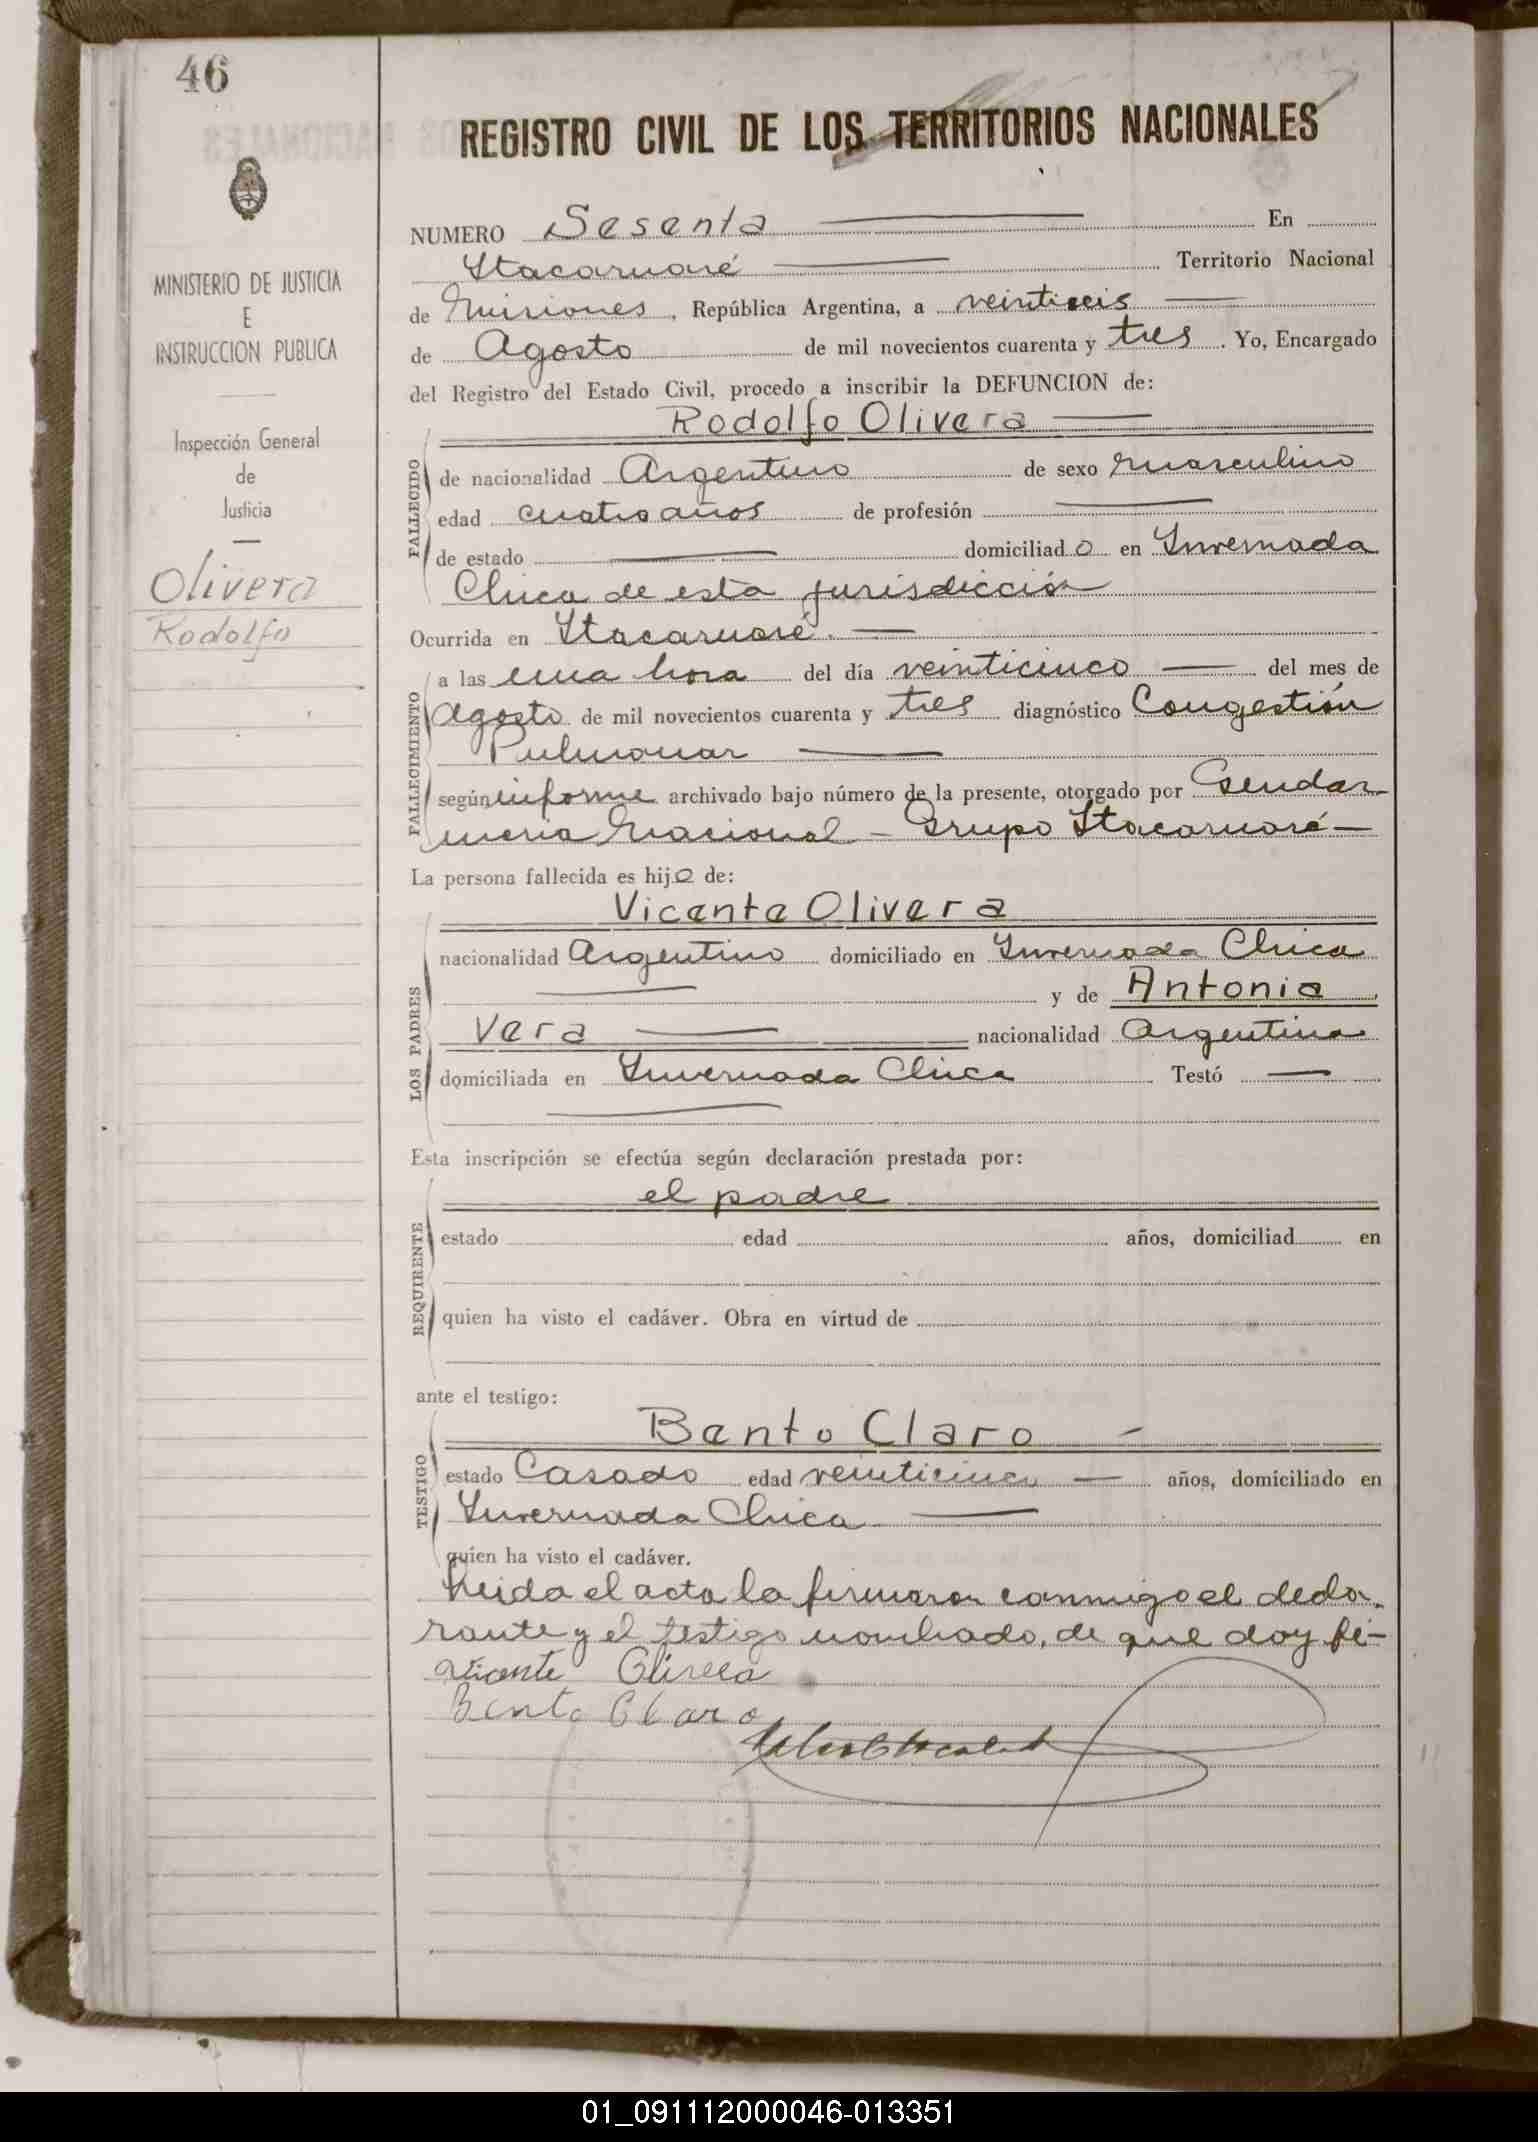 46
REGISTRO CIVIL DE LOS TERRITORIOS NACIONALES
MINISTERIO DE JUSTICIA
E
INSTRUCCION PUBLICA
Inspección General
de
Justicia
Olivera
Rodolfo
NUMERO Sesenta En
Itacaruaré Territorio Nacional
de Misiones, República Argentina, a veintiseis
de Agosto de mil novecientos cuarenta y tres. Yo, Encargado
del Registro del Estado Civil, procedo a inscribir la DEFUNCION de:
FALLECIDO
Rodolfo Olivera
de nacionalidad Argentino de sexo masculino
edad cuatro años de profesión
de estado domiciliado en Invernada
Chica de esta jurisdicción
Ocurrida en Itacaruaré.
FALLECIMIENTO
a las una hora del día veinticinco del mes de
Agosto de mil novecientos cuarenta y tres diagnóstico Congestión
Pulmonar
según informe archivado bajo número de la presente, otorgado por Gendar
meria Nacional - Grupo Itacaruaré -
La persona fallecida es hijo de:
LOS PADRES
Vicente Olivera
nacionalidad Argentino domiciliado en Invernada Chica
y de Antonia
Vera nacionalidad Argentina
domiciliada en Invernada Chica Testó
Esta inscripción se efectúa según declaración prestada por:
REQUIRENTE
el padre
estado edad años, domiciliad en
quien ha visto el cadáver. Obra en virtud de
ante el testigo:
TESTIGO
Bento Claro -
estado Casado edad veinticinco años, domiciliado en
Invernada Chica
quien ha visto el cadáver.
Leida el acta la firmaron conmigo el decla-
rante y el testigo nombrado, de que doy fé-
Vicente Olivera
Bento Claro
01_091112000046-013351